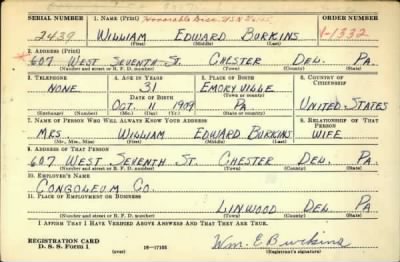 SERIAL NUMBER 1. NAME (Print) Honorable Disc. USN ORDER NUMBER
2439 WILLIAM EDWARD BURKINS 1-1332
(First) (Middle) (Last)
2. ADDRESS (Print)
607 WEST SEVENTH ST. CHESTER DEL. PA.
(Number and street or R. F. D. number) (Town) (County) (State)
3. TELEPHONE 4. AGE IN YEARS 5. PLACE OF BIRTH 6. COUNTRY OF CITIZENSHIP
NONE 31 EMORYVILLE
DATE OF BIRTH (Town or county)
OCT. 11 1909 PA UNITED STATES
(Exchange) (Number) (Mo.) (Day) (Yr.) (State or country)
7. NAME OF PERSON WHO WILL ALWAYS KNOW YOUR ADDRESS 8. RELATIONSHIP OF THAT PERSON
MRS WILLIAM EDWARD BURKINS WIFE
(Mr., Mrs., Miss) (First) (Middle) (Last)
9. ADDRESS OF THAT PERSON
607 WEST SEVENTH ST. CHESTER DEL. PA.
(Number and street or R. F. D. number) (Town) (County) (State)
10. EMPLOYER'S NAME
CONGOLEUM CO.
11. PLACE OF EMPLOYMENT OR BUSINESS
LINWOOD DEL PA.
(Number and street or R. F. D. number) (Town) (County) (State)
I AFFIRM THAT I HAVE VERIFIED ABOVE ANSWERS AND THAT THEY ARE TRUE.
REGISTRATION CARD
D. S. S. Form 1 (over) 16-17105 Wm. E Burkins
(Registrant's signature)